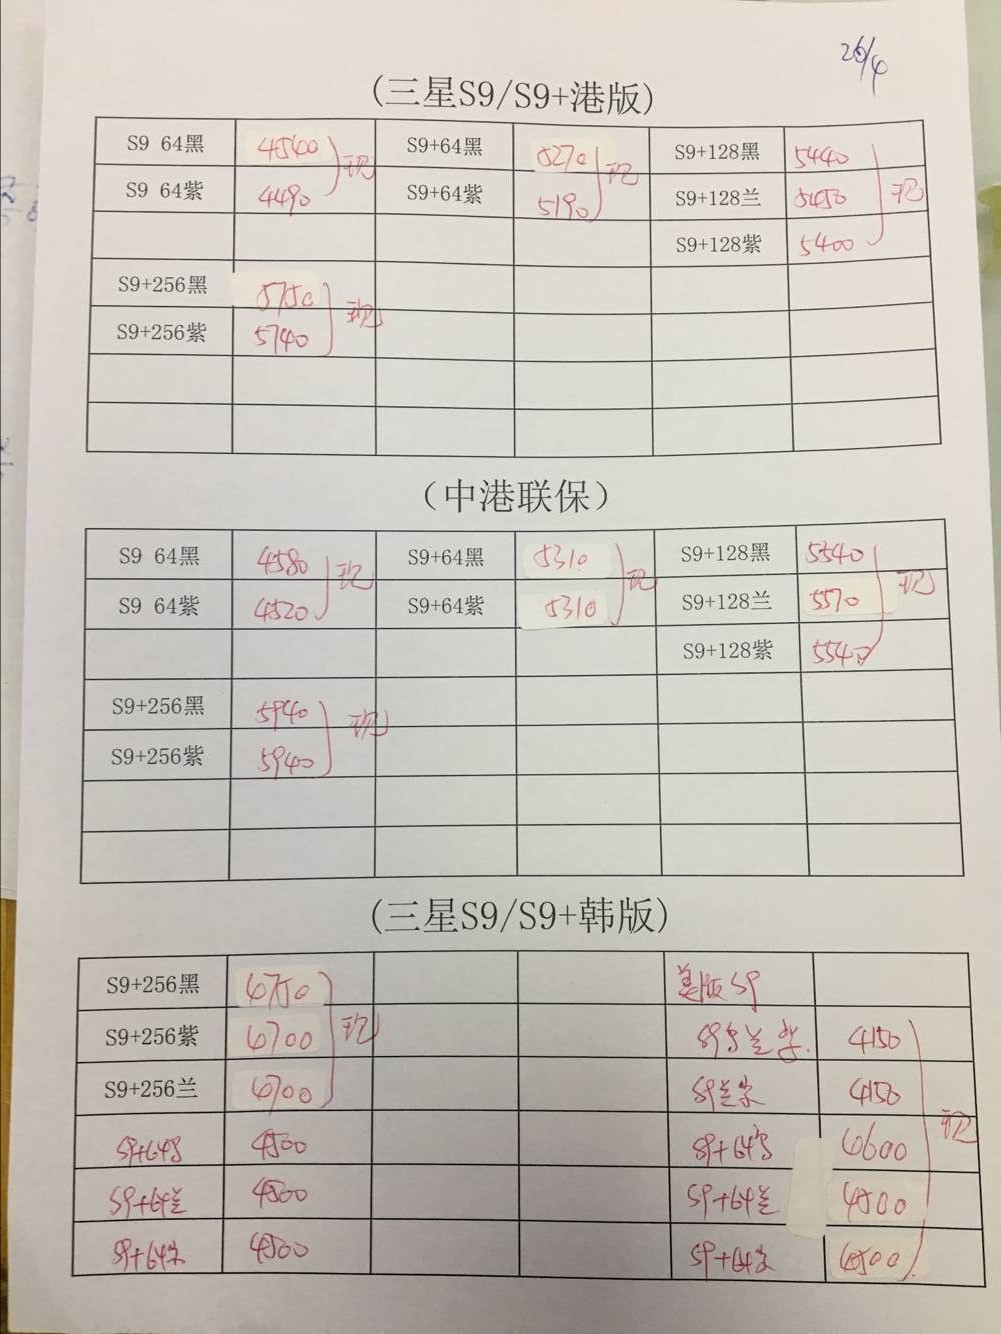 26/4
(三星S9/S9+港版)
S9 64黑 4500 S9+64黑 5270 S9+128黑 5440
现 现 现
S9 64紫 4490 S9+64紫 5190 S9+128兰 5450
S9+128紫 5400
S9+256黑 5750
现
S9+256紫 5740
（中港联保）
S9 64黑 4580 S9+64黑 5310 S9+128黑 5540
现 现 现
S9 64紫 4520 S9+64紫 5310 S9+128兰 5570
S9+128紫 5540
S9+256黑 5940
现
S9+256紫 5940
(三星S9/S9+韩版)
S9+256黑 美版S9
S9+256紫 现 4150
S9+256兰 4150
现
S9+64 4500 S9+64
S9+64兰 4500 S9+64兰 4500
S9+64 4500 S9+64